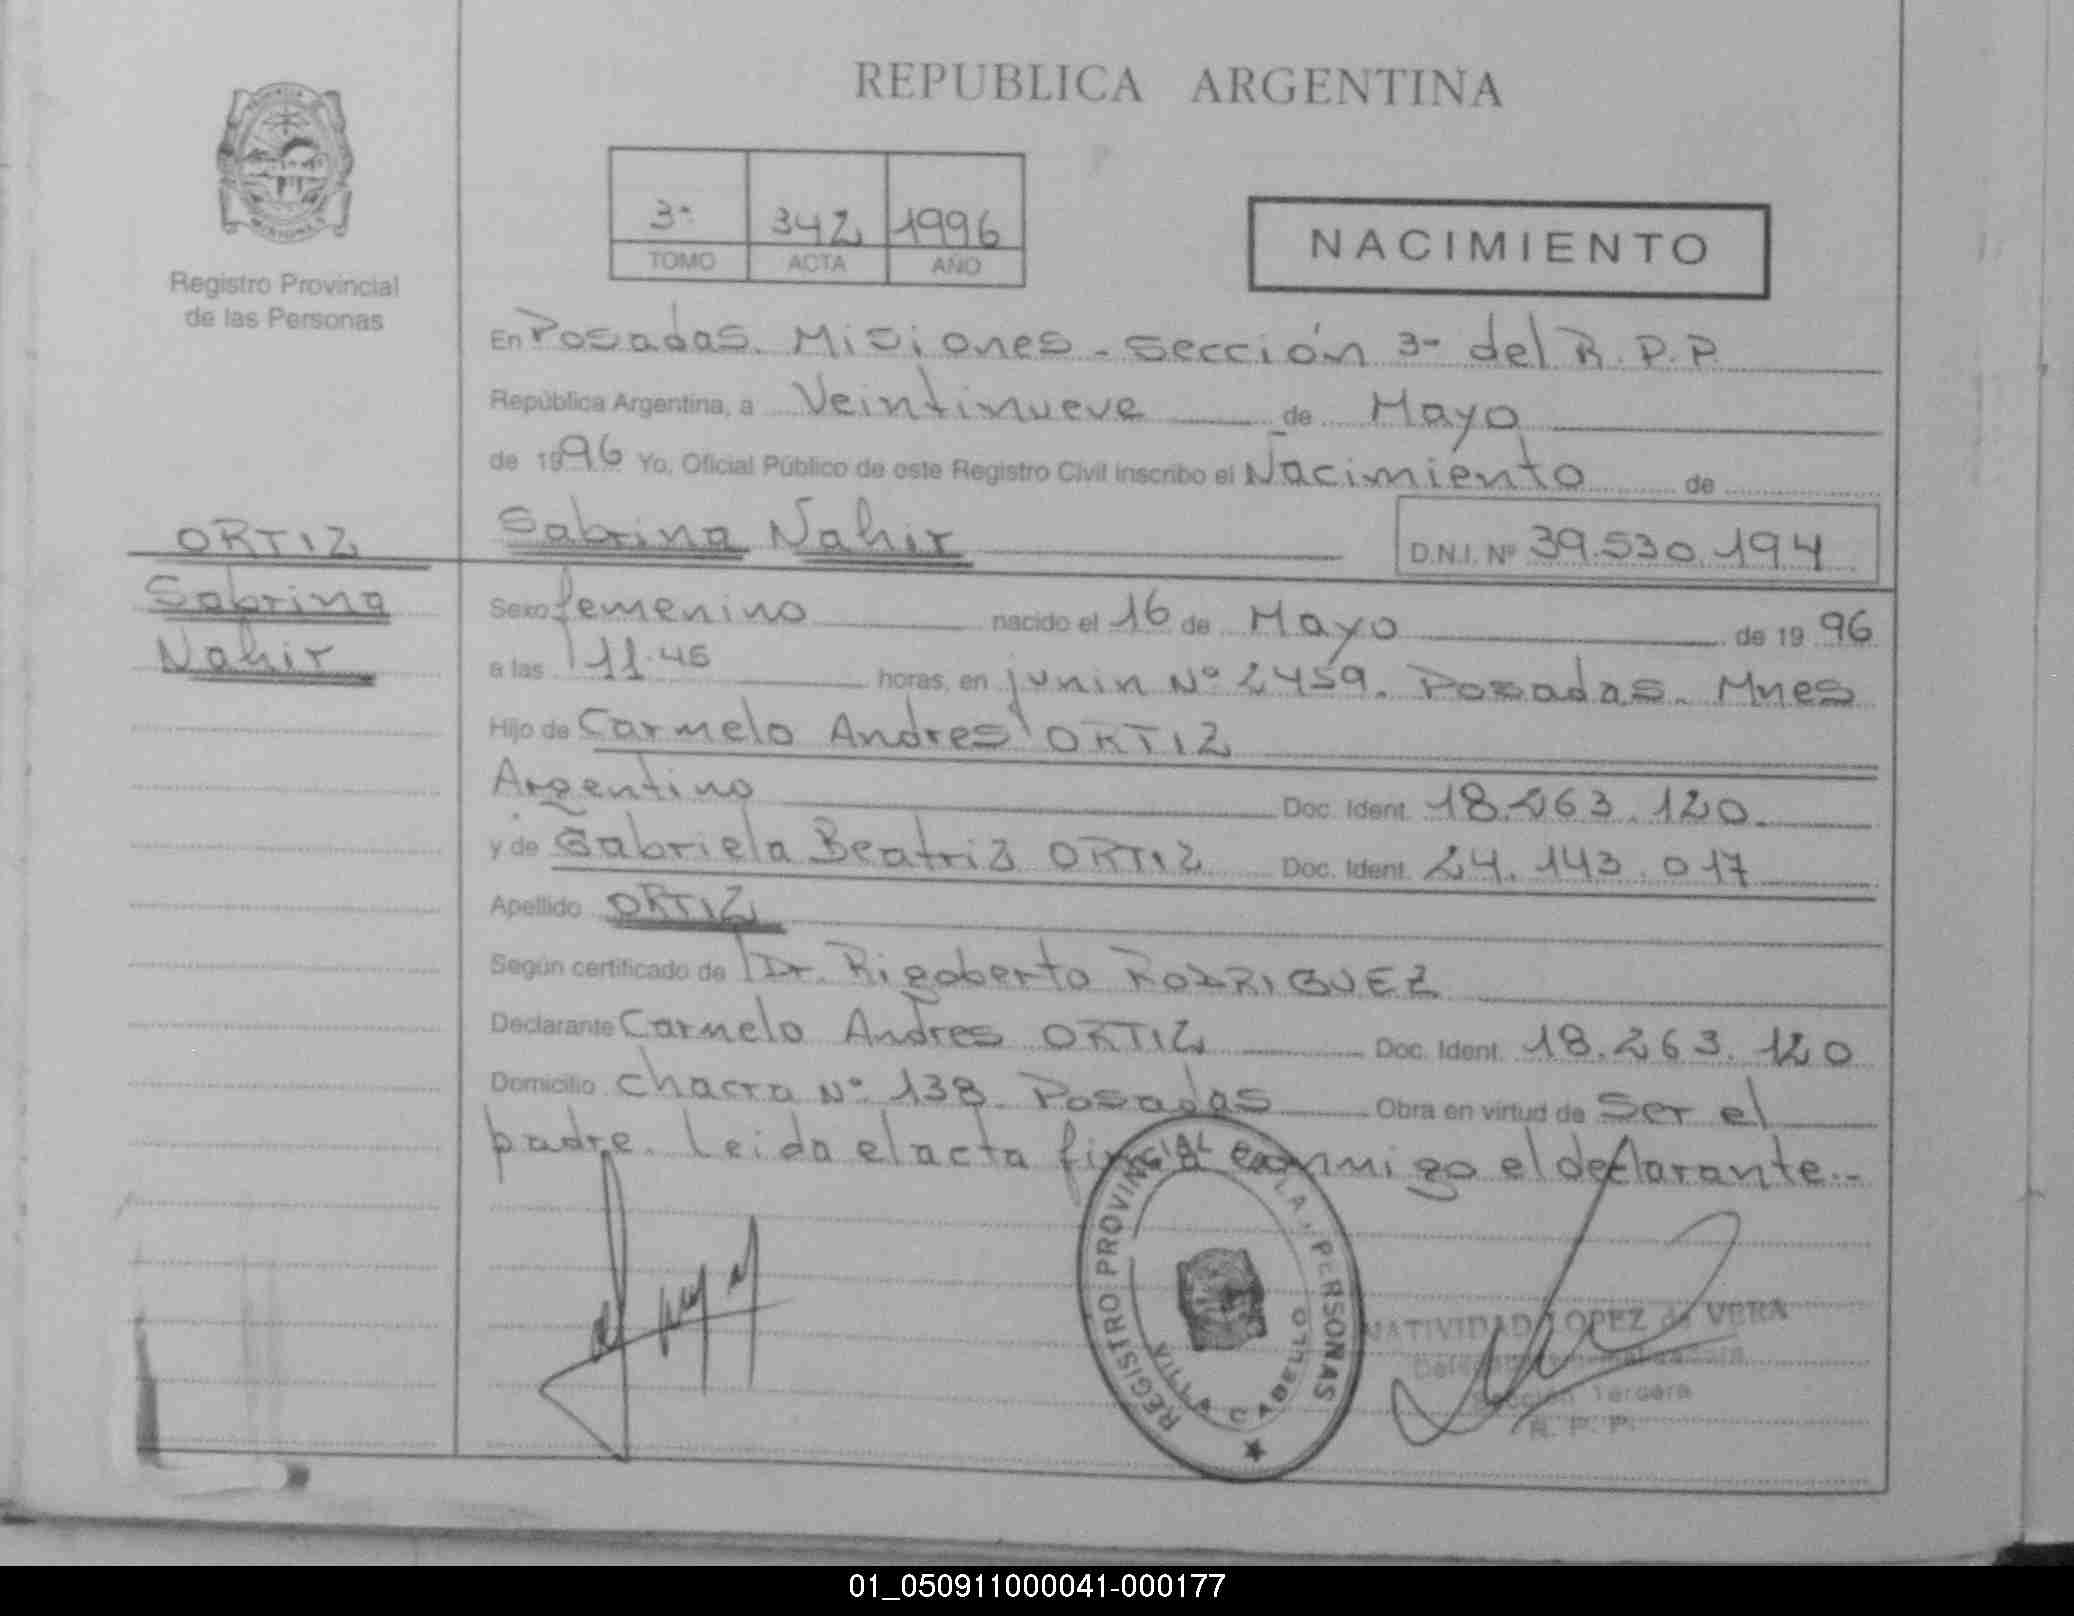 REPUBLICA ARGENTINA
Registro Provincial
de las Personas
3ª 342 1996
TOMO ACTA AÑO
NACIMIENTO
En Posadas. Misiones - sección 3ª del R.P.P.
República Argentina, a Veintinueve de Mayo
de 1996 Yo, Oficial Público de este Registro Civil inscribo el Nacimiento de
ORTIZ
Sabrina
Nahir
Sabrina Nahir D.N.I. Nº 39.530.194
Sexo femenino nacido el 16 de Mayo de 19 96
a las 11.45 horas, en junin Nº 2459. Posadas. Mnes
Hijo de Carmelo Andres ORTIZ
Argentino Doc. Ident. 18.263.120.
y de Gabriela Beatriz ORTIZ Doc. Ident. 24.143.017
Apellido ORTIZ
Según certificado de Dr. Rigoberto RODRIGUEZ
Declarante Carmelo Andres ORTIZ Doc. Ident. 18.263.120
Domicilio chacra Nº 138. Posadas Obra en virtud de ser el
padre. Leida el acta firma conmigo el declarante.-
REGISTRO PROVINCIAL DE LA, PERSONAS
VILLA CABELLO
NATIVIDAD LOPEZ de VERA
Sección Tercera
R. P. P.
01_050911000041-000177